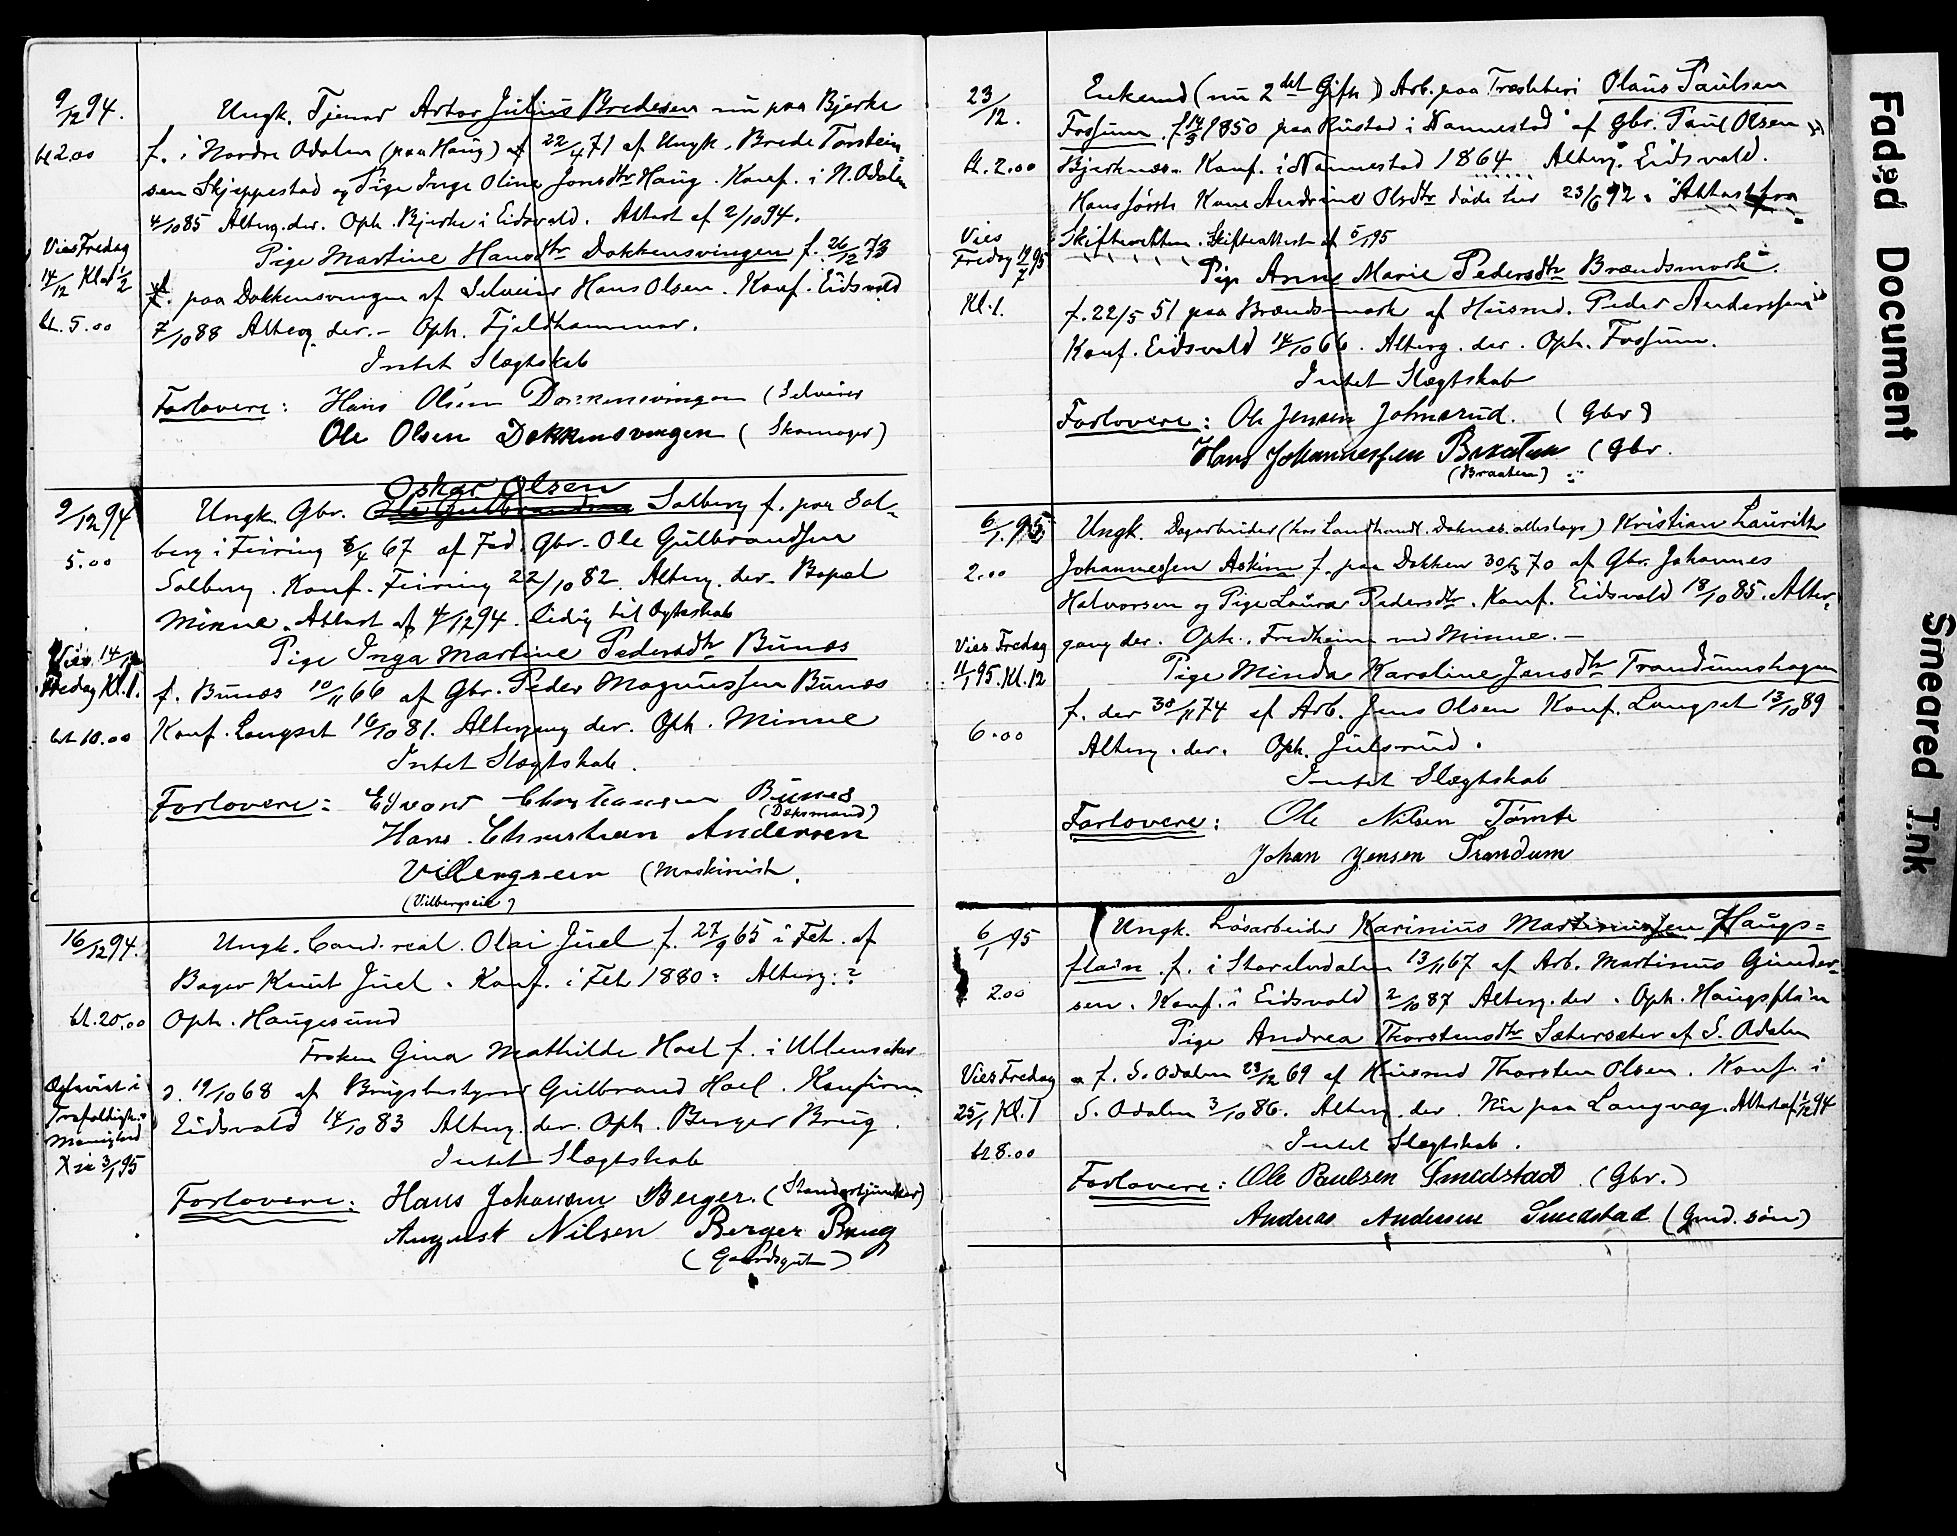 9/12 94.
bt 2.00
Ungk. Tjener Artor Julius Bredesen nu paa Bjerke
f. i Nordre Odalen (paa Haug) af 22/4 71 af Ungk. Brede Torstein-
sen Skjeppestad og Pige Inge Oline Jonsdtr Haug. Konf. i N. Odalen
4/10 85 Alterg. der. Oph. Bjerke i Eidsvold. Attest af 2/10 94.
Vies Fredag
14/12 Kl
bt. 5.00
Pige Martine Hansdtr Dokkensvingen f. 26/12 73
f. paa Dokkensvingen af Selveier Hans Olsen. Konf. Eidsvold
7/10 88 Alterg. der. - Oph. Fjeldhammer.
Intet Slægtskab
Forlovere: Hans Olsen Dokkensvingen (Selveier
Ole Olsen Dokkensvingen (Skomager)
9/12 94
5.00
Oskar Olsen
Ungk. Gbr. Ole Gulbrandsen Solberg f. paa Sol-
berg i Feiring 8/4 67 af Fad. Gbr. Ole Gulbrandsen
Solberg. Konf. Feiring 22/10 82. Alterg. der. Bopel
Minne. Attest af 4/12 94. ledig til Egteskab
Vies 14/12
Fredag Kl. 1.
bt 10.00
Pige Inga Martine Pedersdtr Bunes
f. Bunes 10/11 66 af Gbr. Peder Magnussen Bunes
Konf. Langset 16/10 81. Altergang der. Oph. Minne
Intet Slægtskab.
Forlovere: Edvart Christiansen Bunes
(Dæksmand)
Hans Christian Andersen
Vilbergseien (Maskinist.
(Vilbergseie)
16/12 94.
bt. 20.00
Ungk. Cand. real. Olai Juel f. 27/9 65 i Feh. af
Bager Knut Juel. Konf. i Feh 1880: Alterg.?
Oph. Haugesund
Frøken Gina Mathilde Hoel f. i Ullensaker
d. 19/10 68 af Brugsbestyrer Gulbrand Hoel. Konfirm.
Eidsvold 14/10 83 Alterg. der. Oph. Berger Brug.
Intet Slægtskab
Ægteviet i
Trefoldigh.
Menighed
Xia 3/1 95
Forlovere: Hans Johansen Berger. (Standartjunker)
August Nilsen Berger Brug
(Gaardsgut)
23/12.
bt. 2.00
Enkemd (nu 2det Gift) Arb. paa Træsliberi Olaus Paulsen
Fossum. f 14/3 1850 paa Rustad i Nannestad af Gbr. Paul Olsen
Bjerknes. Konf. i Nannestad 1864 Alterg. Eidsvold.
Hans første Kone Andrine Olsdtr døde her 23/6 92. Attest fra
Skifteretten. Skifteattest af 5/1 95
Vies
Fredag
Kl. 1.
Pige Anne Marie Pedersdtr Brændsmork.
f. 22/5 51 paa Brændsmork af Husmd. Peder Anderssen
Konf. Eidsvold 14/10 66. Alterg. der. Oph. Fossum.
Intet Slægtskab
Forlovere: Ole Jensen Johnsrud. (Gbr)
Hans Johannessen Braaten (Gbr.
(Braaten)
6/1 95
2.00
Ungk. Dagarbeider (hos Landhandl. ) Kristian Lauritz
Johannessen Askim f. paa Dokken 30/3 70 af Gbr. Johannes
Halvorsen og Pige Laura Pedersdtr. Konf. Eidsvold 18/10 85. Alter-
gang der. Oph. Fredheim ved Minne. -
Vies Fredag
11/1 95. Kl. 12
6.00
Pige Minda Karoline Jensdtr Trandumshagen
f. der 30/11 74 af Arb. Jens Olsen Konf. Langset 13/10 89
Alterg. der. Oph. Julsrud.
Intet Slægtskab
Forlovere: Ole Nilsen Tømte
Johan Jensen Trandum
6/1 95
2.00
Ungk. Løsarbeider Karinius Martinussen Haugs-
flain. f. i Storelvdalen 13/11 67 af Arb. Martinus Gunder-
sen. Konf. i Eidsvold 2/10 87 Alterg. der. Oph. Haugsflain
Pige Andrea Thorstensdtr Sætersæter af S. Odalen
Vies Fredag
25/1 Kl. 1
bt 8.00
f. S. Odalen 29/12 69 af Husmd Thorsten Olsen. Konf. i
S. Odalen 3/10 86. Alterg. der. Nu paa Langvag. Attest af 1/12 94
Intet Slægtskab.
Forlovere: Ole Paulsen Smedstad (Gbr.)
Andreas Andersen Smedstad (Gmd. søn)
Faded Document
Smeared Ink